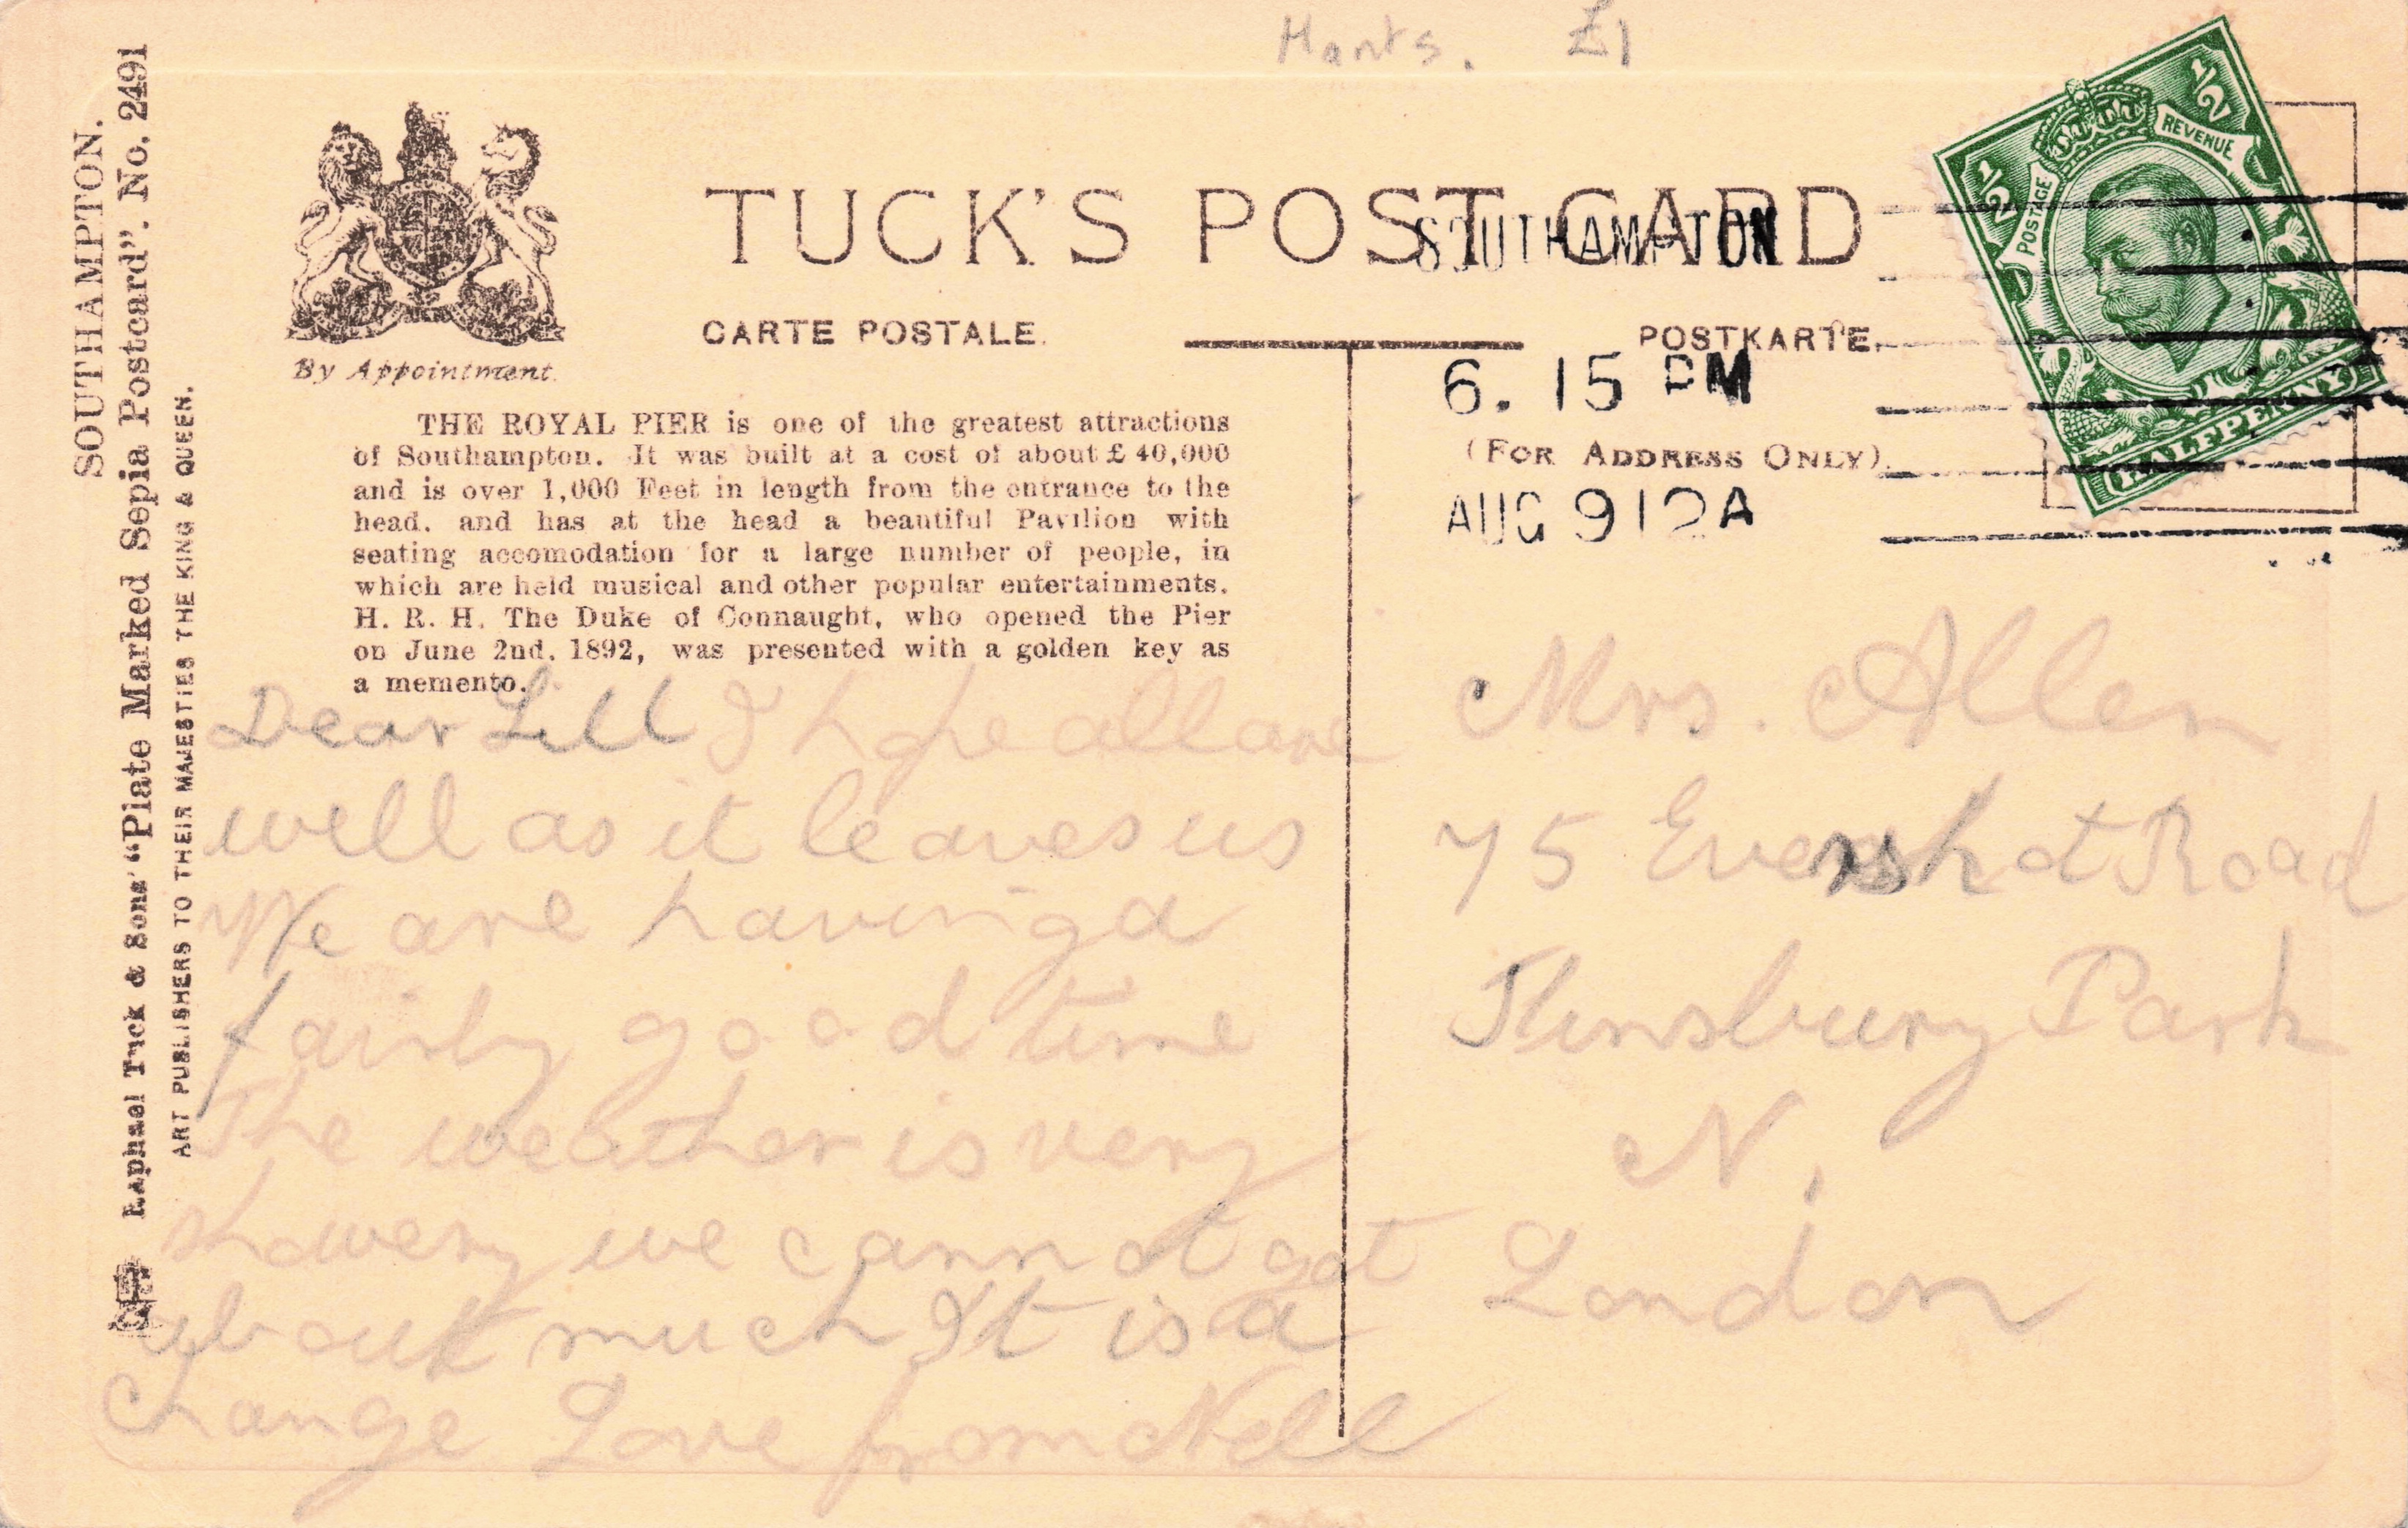 Hants. £1
SOUTHAMPTON.
Raphael Tuck & Sons' "Plate Marked Sepia Postcard". No. 2491
ART PUBLISHERS TO THEIR MAJESTIES THE KING & QUEEN.
By Appointment.
TUCK'S POST CARD
CARTE POSTALE.
POSTKARTE.
(FOR ADDRESS ONLY).
SOUTHAMPTON
6. 15 PM
AUG 9 12 A
POSTAGE REVENUE
½ ½
HALFPENNY
THE ROYAL PIER is one of the greatest attractions
of Southampton. It was built at a cost of about £ 40,000
and is over 1,000 Feet in length from the entrance to the
head. and has at the head a beautiful Pavilion with
seating accomodation for a large number of people, in
which are held musical and other popular entertainments.
H. R. H. The Duke of Connaught, who opened the Pier
on June 2nd. 1892, was presented with a golden key as
a memento.
Dear Lill I hope all are
well as it leaves us
We are having a
fairly good time
The weather is very
showery we cannot get
about much It is a
change Love from Nell
Mrs. Allen
75 Evershot Road
Finsbury Park
N.
London